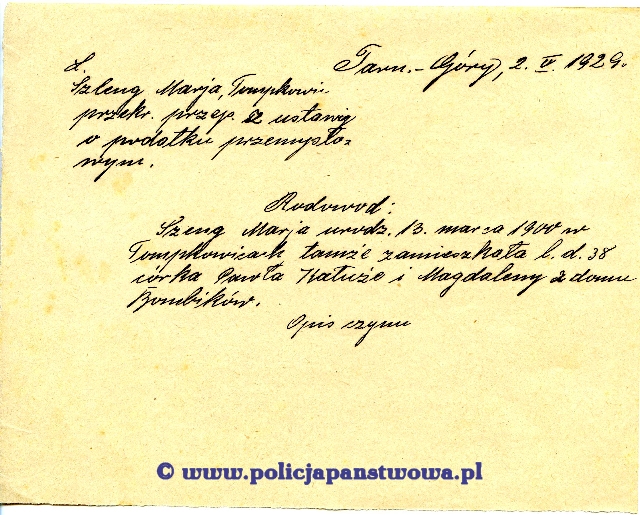 Tarn.-Góry, 2. IV. 1929.
L.
Szleng Marja, Tompkowic
przekr. przep. z ustawy
o podatku przemysło=
wym.
Rodowod:
Szeng Marja urodz. 13. marca 1900 w
Tompkowicach, tamże zamieszkała l. d. 38
córka Pawła Katuże i Magdaleny z domu
Bombików.
Opis czynu
© www.policjapanstwowa.pl